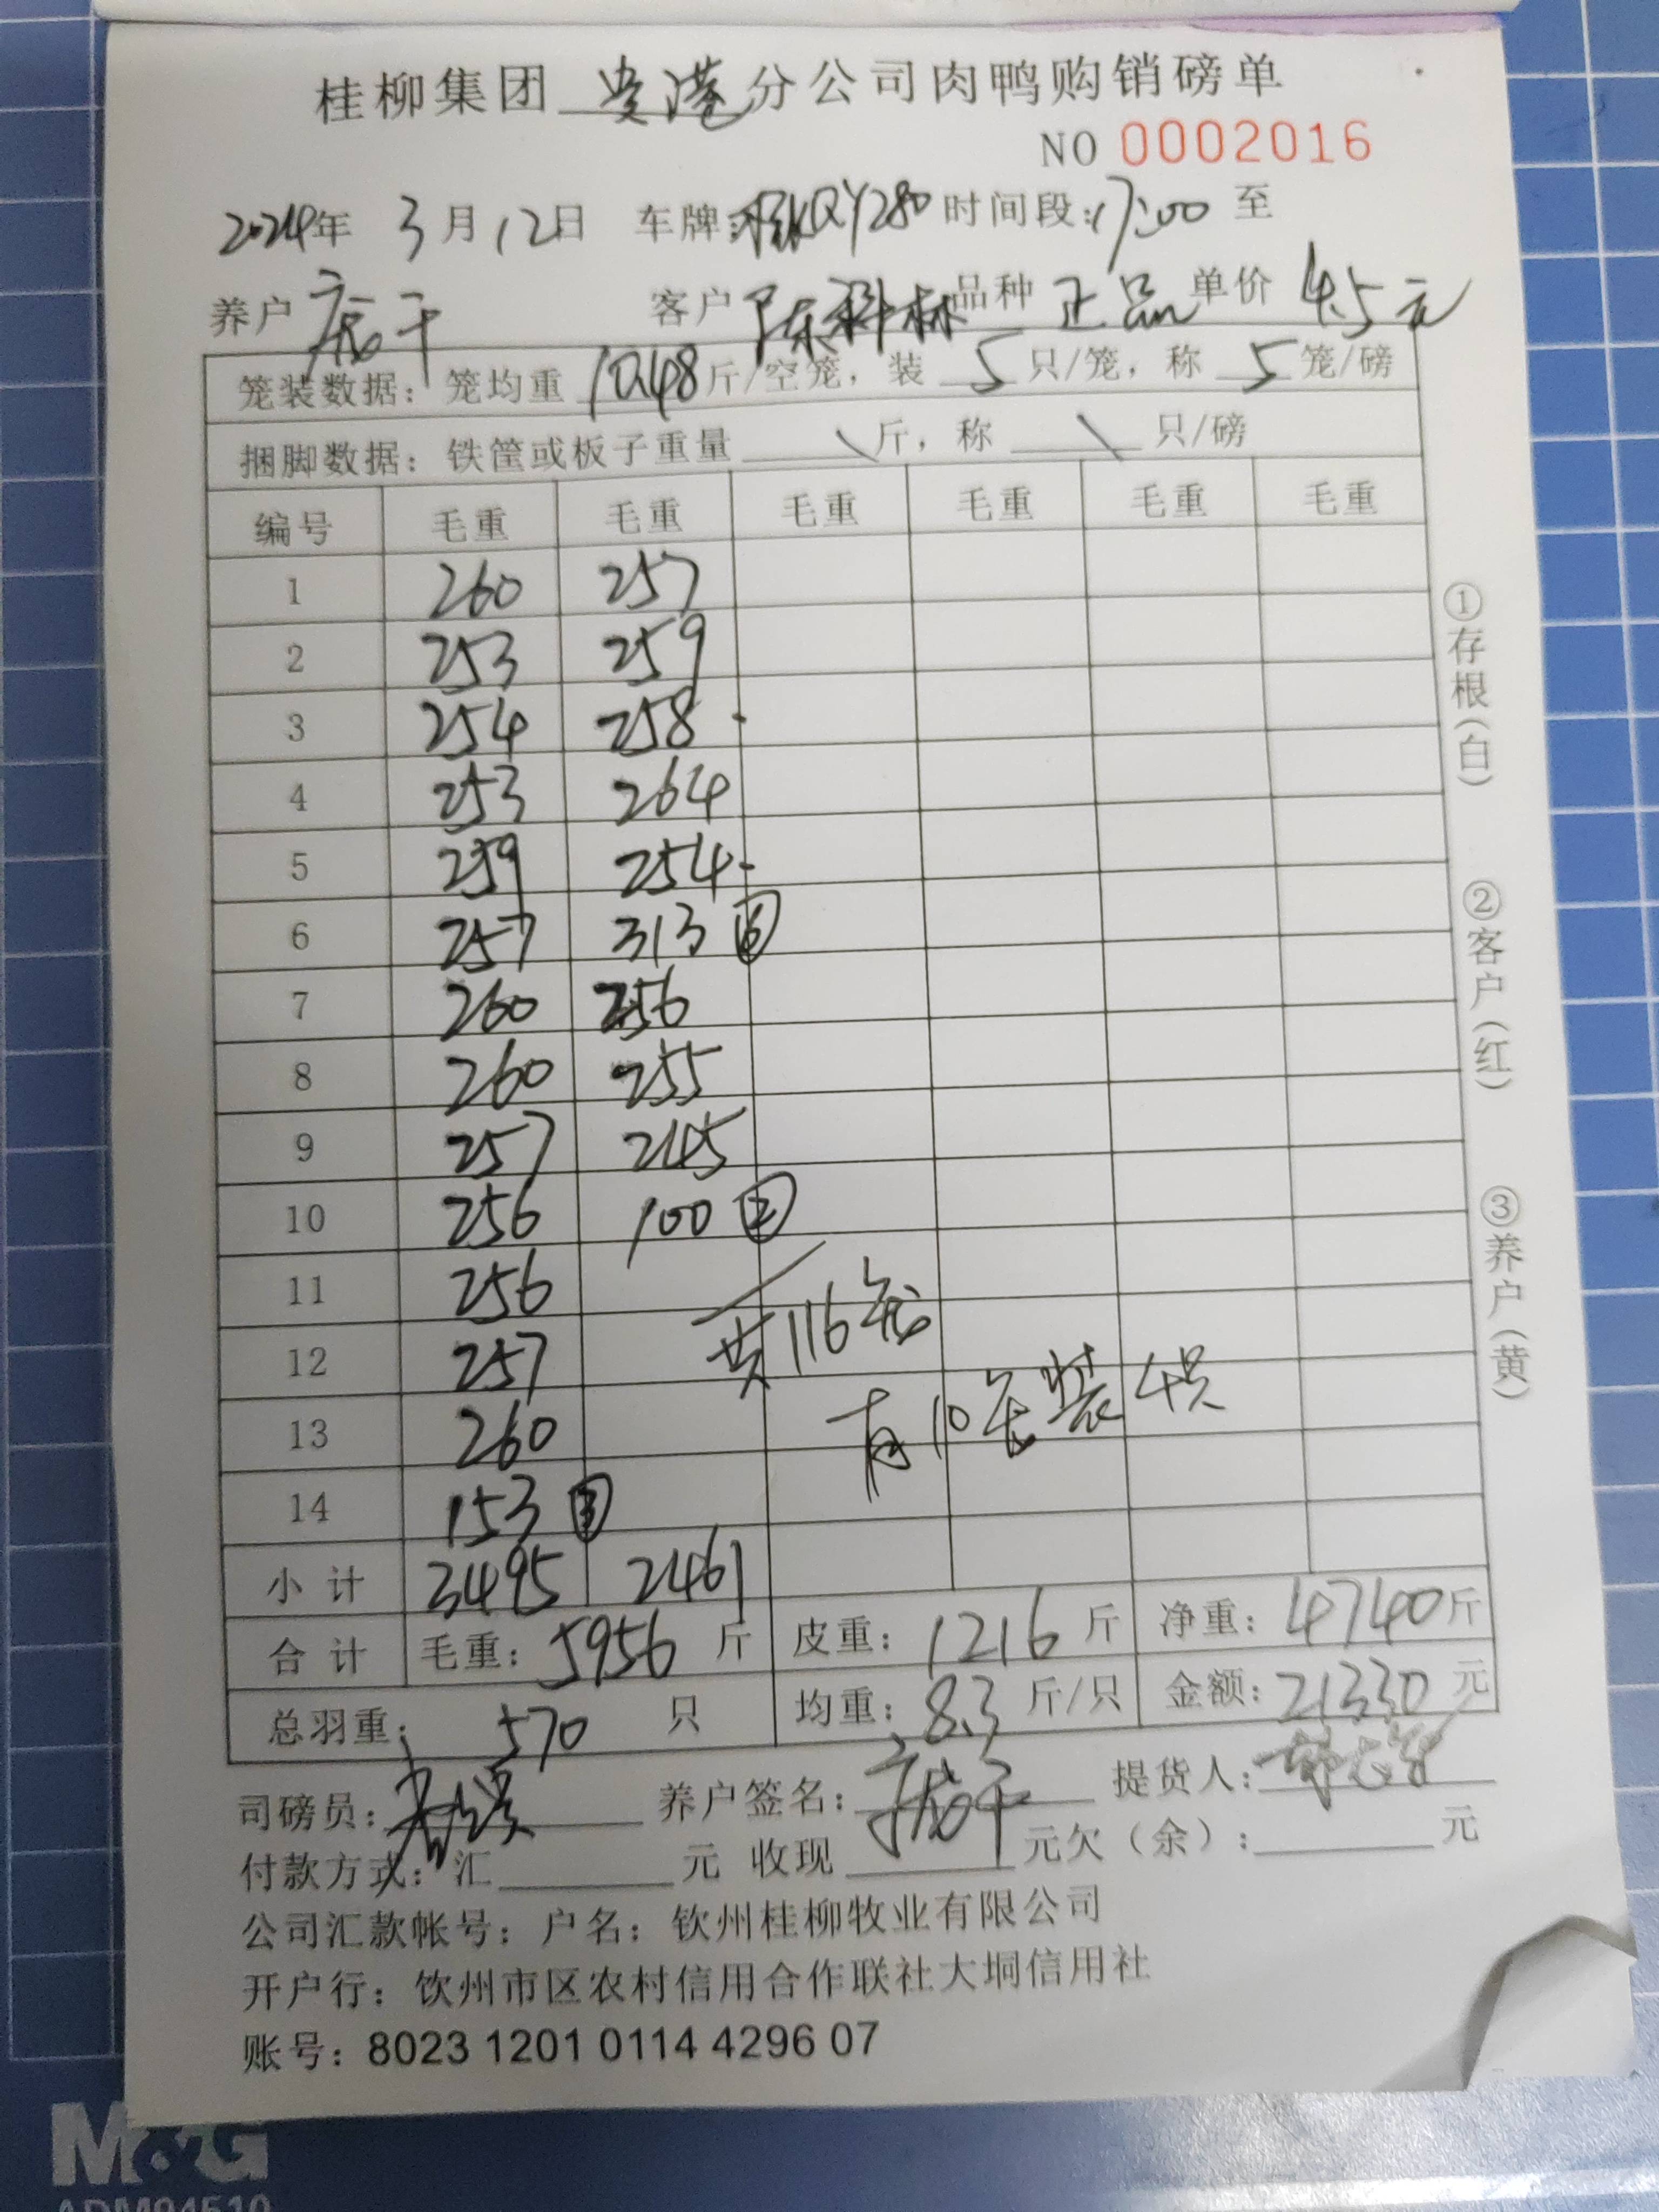 桂柳集团 贵港 分公司肉鸭购销磅单
NO 0002016
2024年 3月12日 车牌: QY280 时间段:17:00 至
养户 客户 陈科林 品种 正品 单价 4.5元
笼装数据: 笼均重 10.48 斤/空笼, 装 5 只/笼, 称 5 笼/磅
捆脚数据: 铁筐或板子重量 \ 斤, 称 \ 只/磅
编号 毛重 毛重 毛重 毛重 毛重 毛重
1 260 257
2 253 259
3 254 258
4 253 264
5 259 254
6 257 313 ⑥
7 260 256
8 260 255
9 257 245
10 256 100 ②
11 256
12 257 共116笼
13 260 有10笼装4只
14 153 ③
小计 3495 2461
合计 毛重: 5956 斤 皮重: 1216 斤 净重: 4740斤
总羽重: 570 只 均重: 8.3 斤/只 金额: 21330 元
司磅员: 养户签名: 提货人:
付款方式: 汇 元 收现 元欠(余): 元
公司汇款帐号: 户名: 钦州桂柳牧业有限公司
开户行: 饮州市区农村信用合作联社大垌信用社
账号: 8023 1201 0114 4296 07
①存根(白)
②客户(红)
③养户(黄)
M&G
ADM94510